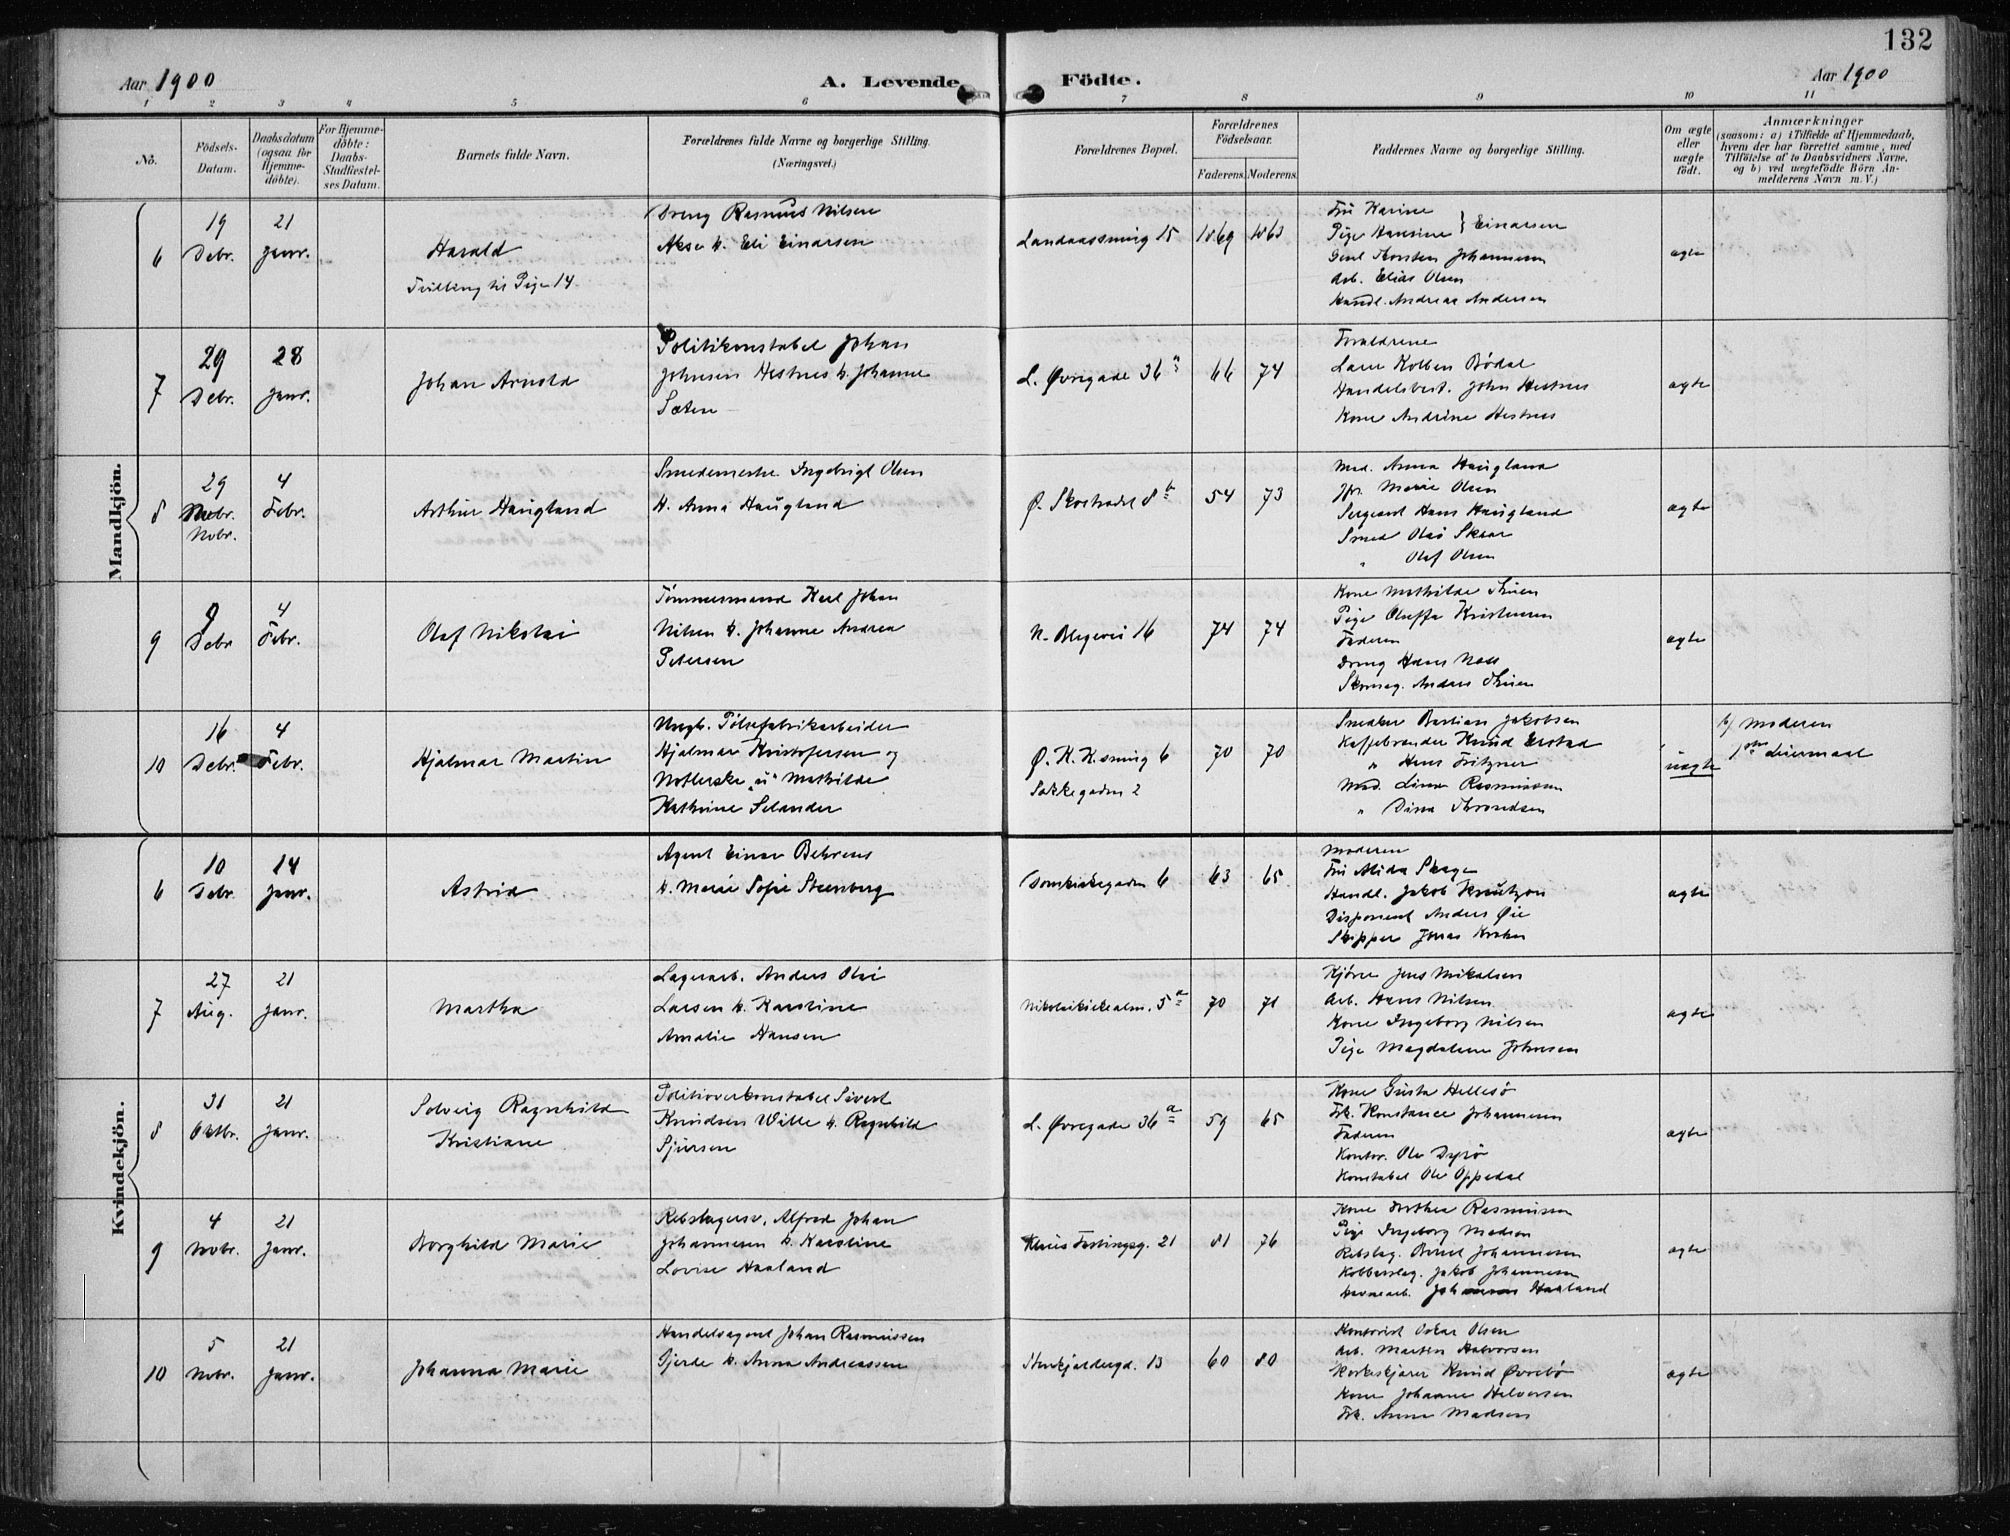 132
Aar 1900
A. Levende Födte.
Aar 1900
1 2 3 4 5 6 7 8 9 10 11
No.
Födsels-
Datum.
Daabsdatum
(ogsaa for
Hjemme-
döbte).
For Hjemme-
döbte:
Daabs-
Stadfæstel-
ses Datum.
Barnets fulde Navn.
Forældrenes fulde Navne og borgerlige Stilling.
(Næringsvei.)
Forældrenes Bopæl.
Forældrenes
Födselsaar.
Faderens. Moderens.
Faddernes Navne og borgerlige Stilling.
Om ægte
eller
uægte
födt.
Anmærkninger
(saasom: a) i Tilfælde af Hjemmedaab,
hvem der har forrettet samme, med
Tilföielse af to Daabsvidners Navne,
og b) ved uægtefödte Börn An-
melderens Navn m. V.)
Mandkjön.
6
19
Debr.
21
Janr.
Harald
Tvilling til Pige 14
Dreng Rasmus Nilsen
Eli Einarsen
Landaassmug 15
1869
1863
Fru Karine
Pige Hansine } Einarsen
Torsten Johannesen
Arb. Elias Olsen
Handl. Andreas Andersen
ægte
7
29
Debr.
28
Janr.
Johan Arnold
Politikonstabel Johan
Johnsen Hestnes h. Johanne
Sæten
L. Øvregade 36
66
74
Forældrene
Lærer Kolben Bödal
Handelsbest. John Hestnes
Kone Andrine Hestnes
ægte
8
29
Nobr.
4
Febr.
Arthur Haugland
Smedemester Ingebrigt Olsen
h. Anna Haugland
Ø. Skostrædet 8 b
54
73
Mad. Anna Haugland
Jfr. Marie Olsen
Sergeant Hans Haugland
Smed Olai Skaar
" Olaf Olsen
ægte
9
9
Debr
4
Febr.
Olaf Nikolai
Tömmermand Karl Johan
Nilsen h. Johanne Andrea
Petersen
N. Blegevei 16
74
74
Kone Mathilde Thuen
Pige Oleffa Kristensen
Faderen
Dreng Hans Næss
Skomag. Anders Thuen
ægte
10
16
Debr.
4
Febr.
Hjalmar Martin
Ungk. Pölsefabrikarbeider
Hjalmar Kristofersen og
Mathilde
Kathrine Selander
Ø. K. K. smug 6
Sækkegaden 2
70
70
Snedker Bastian Jakobsen
Kaffebrænder Knud Erstad
" Hans Fritzner
Mad. Lina Rasmussen
" Dina Throndsen
uægte
b/ Moderen
1ste Leiermaal
Kvindekjön.
6
10
Debr.
14
Janr.
Astrid
Agent Einar Behrens
h. Marie Sofie Steenberg
Domkirkegaden 6
63
65
Moderen
Fru Alida Skage
Handl. Jakob Kreutzon
Disponent Anders Øie
Skipper Jonas Krohn
ægte
7
27
Aug.
21
Janr.
Martha
Lagerarb. Anders Olai
Larsen h. Karoline
Amalie Hansen
Nikolaikirkealm. 5 a
70
71
Kjörer Jens Mikalsen
Arb. Hans Nilsen
Kone Ingeborg Nilsen
Pige Magdalene Johnsen
ægte
8
31
Oktbr.
21
Janr.
Solveig Ragnhild
Kristiane
Politioverkonstabel Sivert
Knudsen Wille h. Ragnhild
Sjursen
L. Øvregade 36 a
59
65
Kone Gusta Hellesö
Frk. Konstance Johannesen
Faderen
Kontor. Ole Dysö
Konstabel Ole Oppedal
ægte
9
4
Nobr.
21
Janr.
Borghild Marie
Rebslagersv. Alfred Johan
Johannesen h. Karoline
Lovise Haaland
Klaus Fastingsg. 21
81
76
Kone Dorthea Rasmussen
Pige Ingeborg Madsen
Rebslag. Bernt Johannesen
Kobberslag. Jakob Johannesen
Havnearb. Johannes Haaland
ægte
10
5
Nobr.
21
Janr.
Johanna Marie
Handelsagent Johan Rasmussen
Gjerde h. Anna Andreassen
Stenkjeldergd. 13
60
80
Kontorist Oskar Olsen
Arb. Martin Halvorsen
Kirkekjører Knud Øvrebö
Kone Johanne Halvorsen
Frk. Anna Madsen
ægte